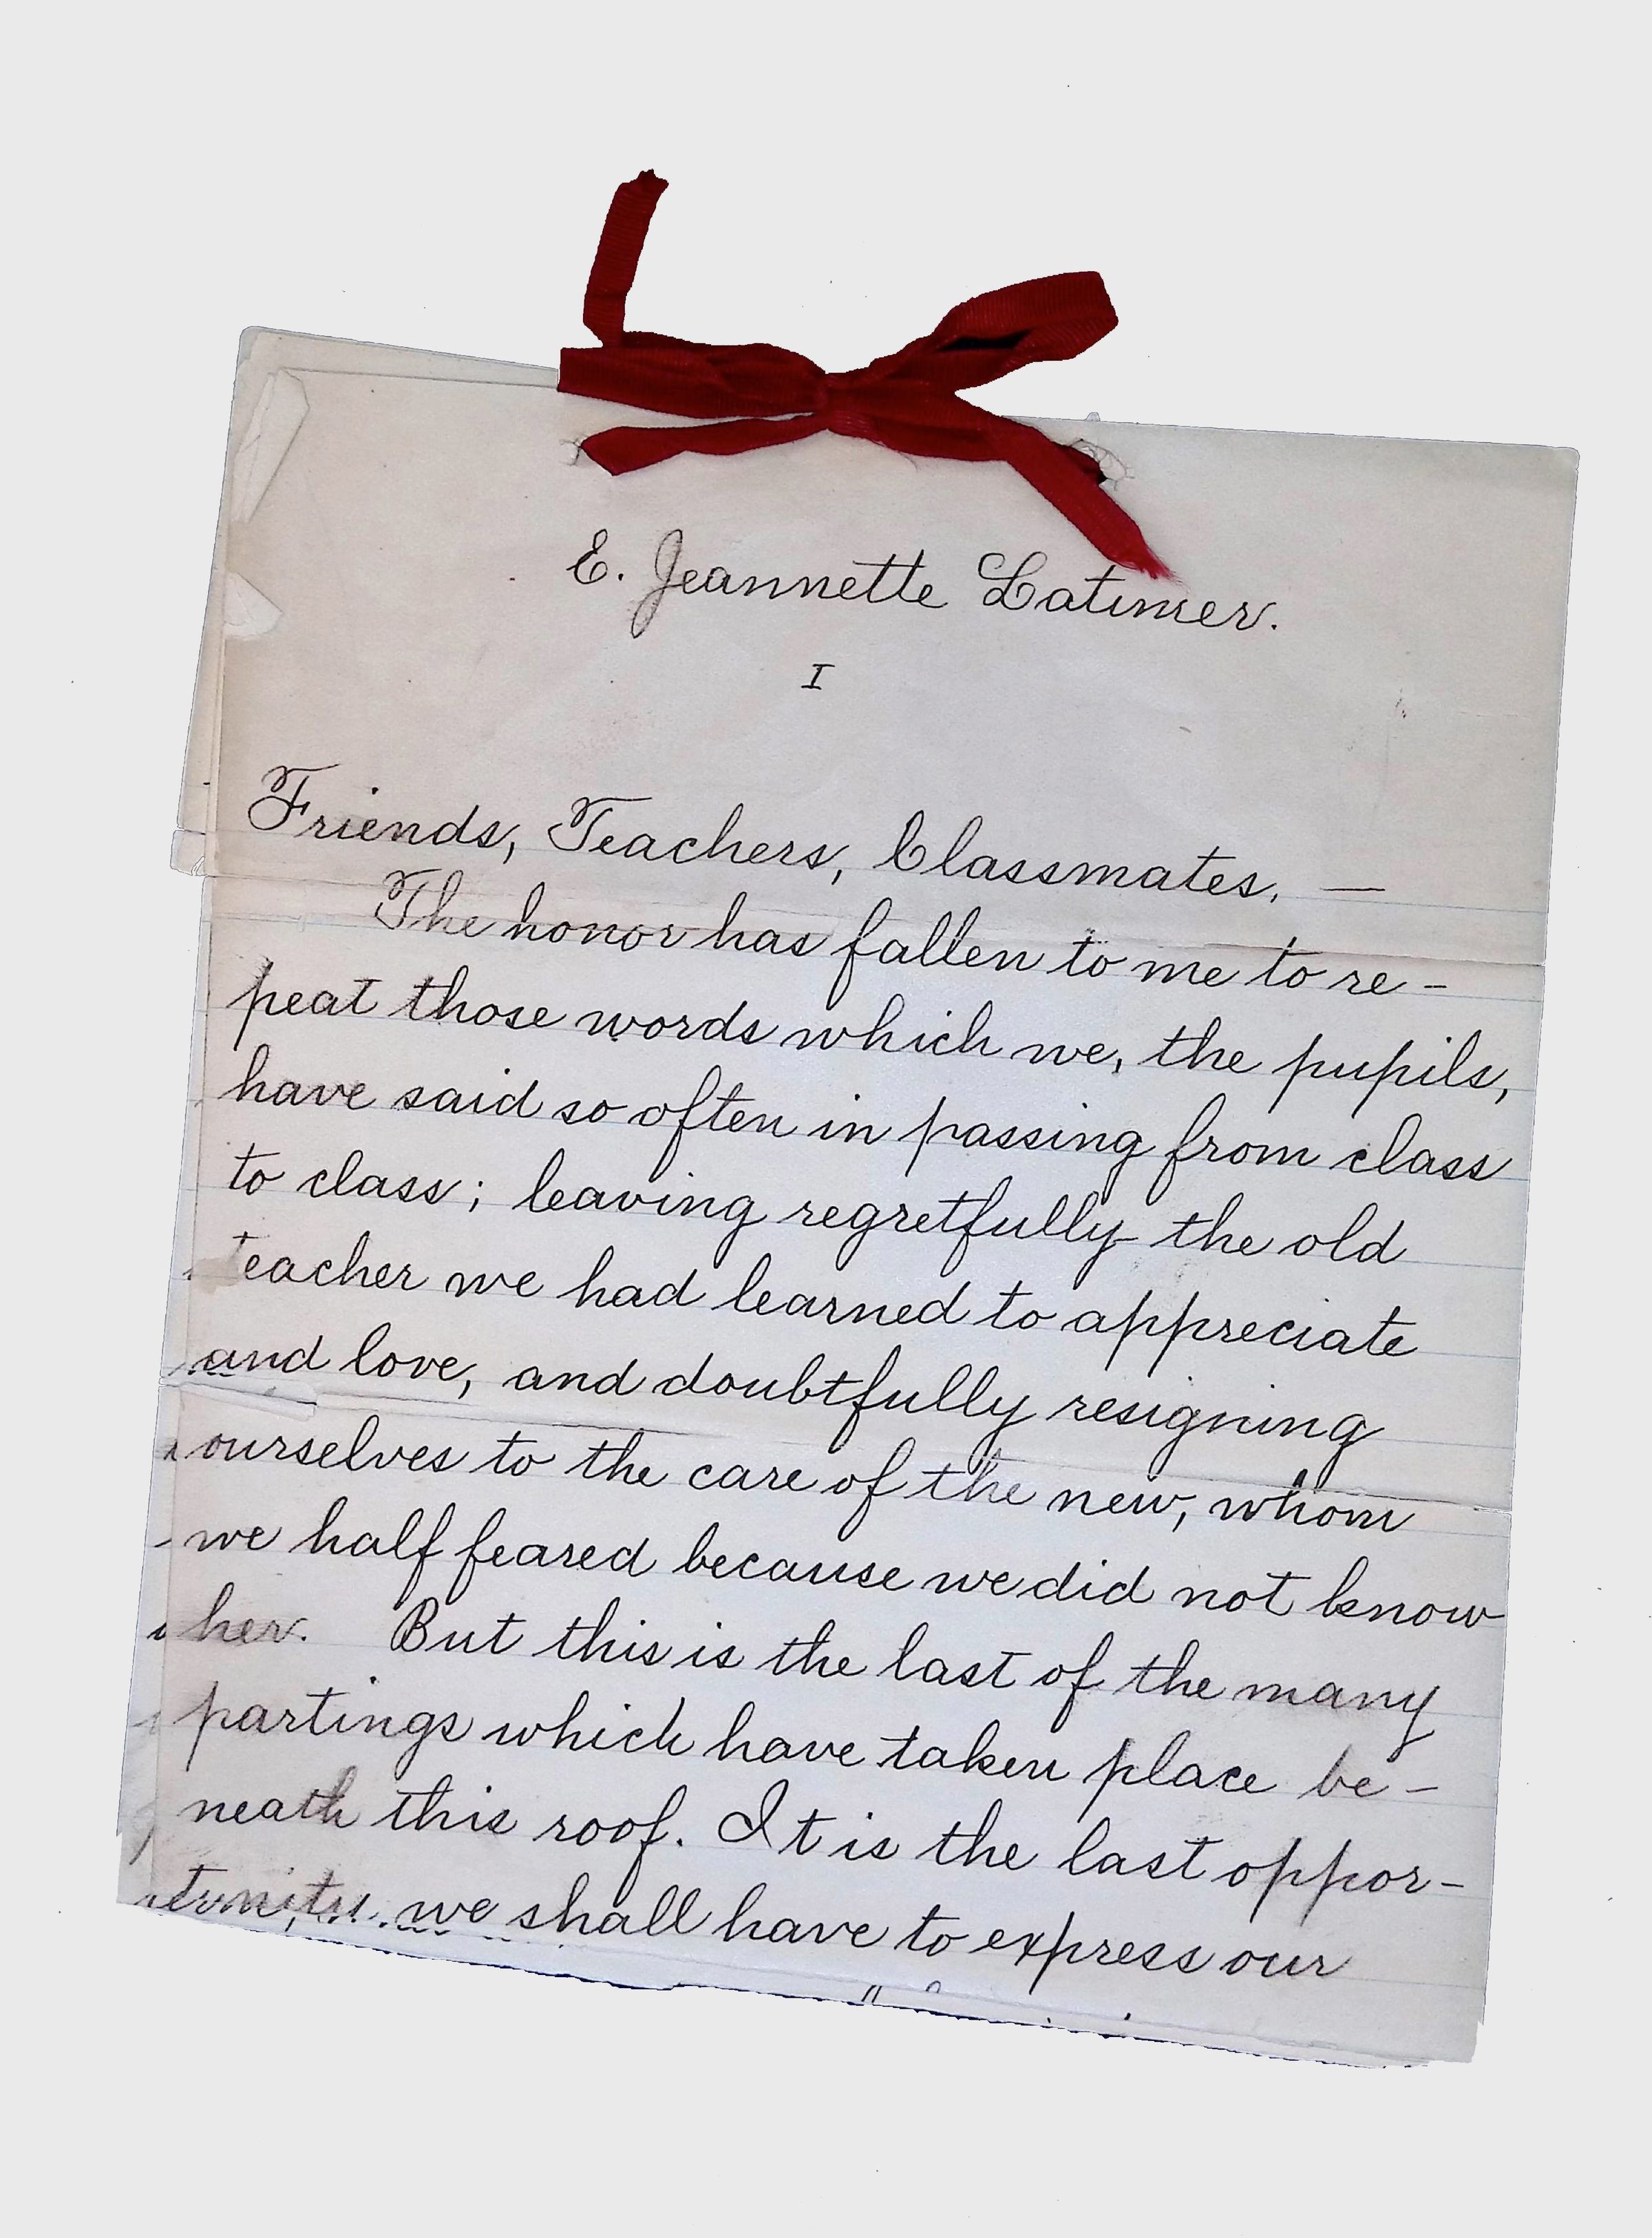 E. Jeannette Latimer.
I
Friends, Teachers, Classmates, —
The honor has fallen to me to re-
peat those words which we, the pupils,
have said so often in passing from class
to class; leaving regretfully the old
teacher we had learned to appreciate
and love, and doubtfully resigning
ourselves to the care of the new, whom
we half feared because we did not know
her. But this is the last of the many
partings which have taken place be-
neath this roof. It is the last oppor-
tunity we shall have to express our